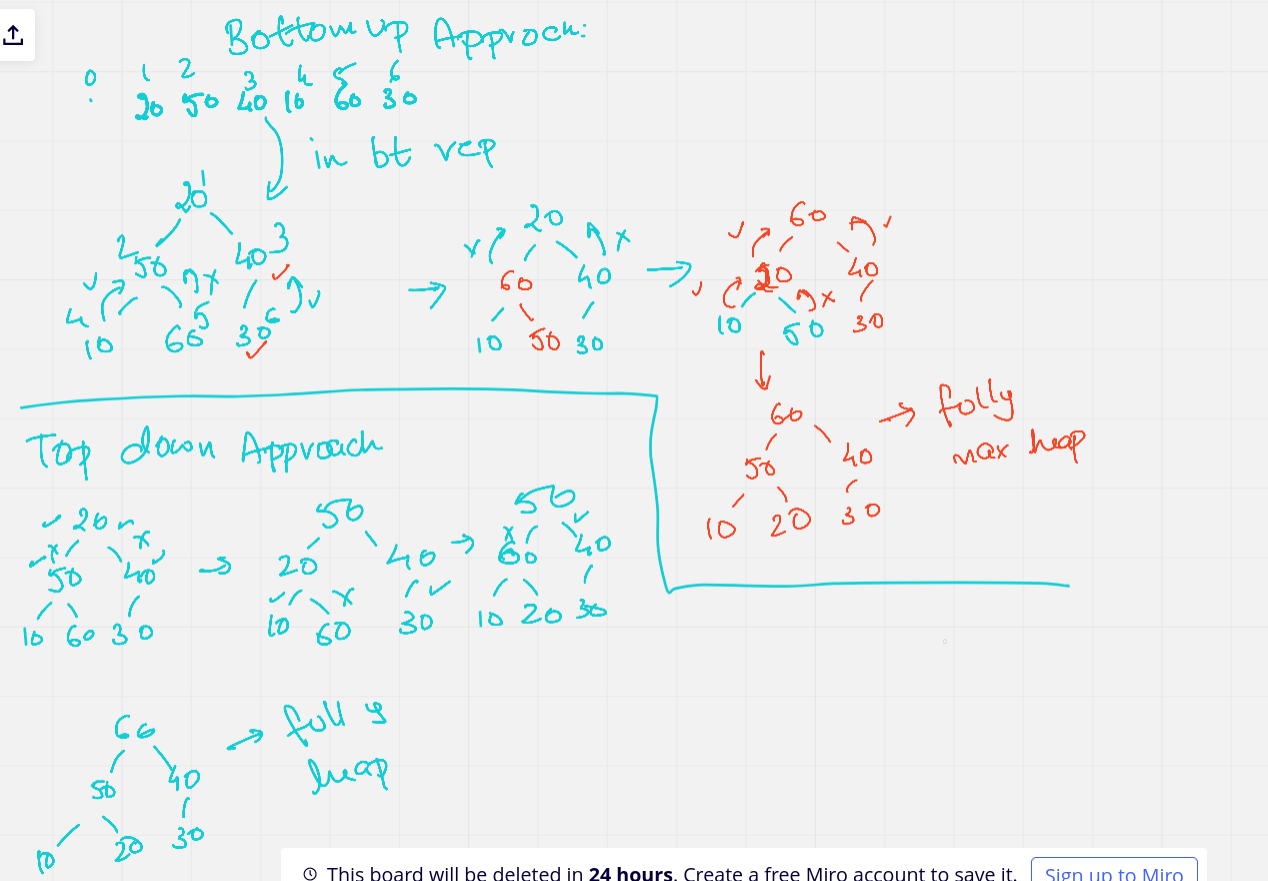 Bottom up Approch:
0 1 2 3 4 5 6
. 20 50 40 10 60 30
in bt rep
20 1
2 50 40 3
4 5 6
10 60 30
20
60 40
10 50 30
60
20 40
10 50 30
60
50 40
10 20 30
fully
max heap
Top down Approach
20
50 40
10 60 30
50
20 40
10 60 30
50
60 40
10 20 30
60
50 40
10 20 30
fully
heap
This board will be deleted in 24 hours. Create a free Miro account to save it. Sign up to Miro